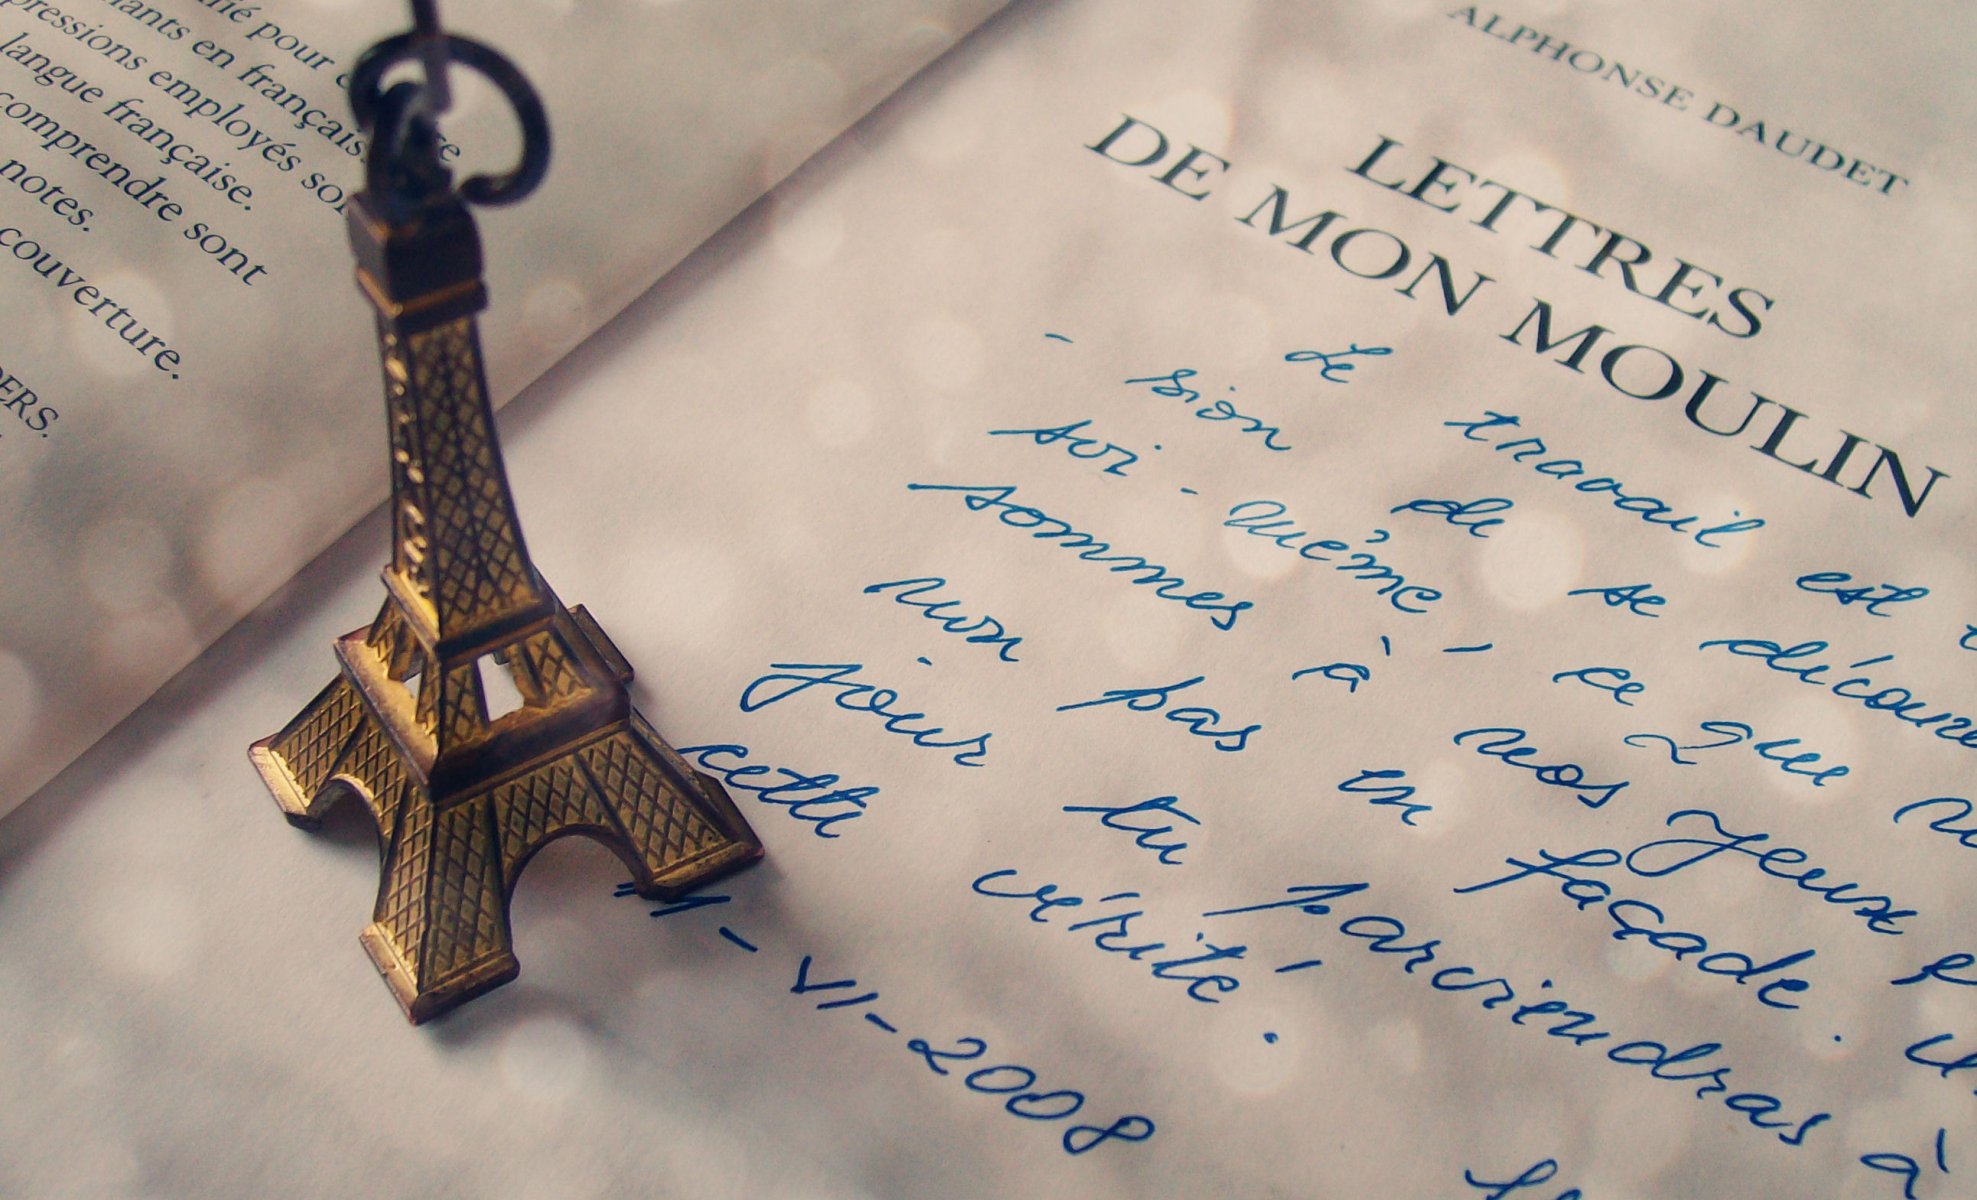 pour
en français.
employés
langue française.
comprendre sont
notes.
couverture.
ERS.
ALPHONSE DAUDET
LETTRES
DE MON MOULIN
Le travail est
- sion de se
soi-même, ce que
sommes à nos yeux
non pas en façade.
jour tu parviendras à
cette vérité.
VII-2008